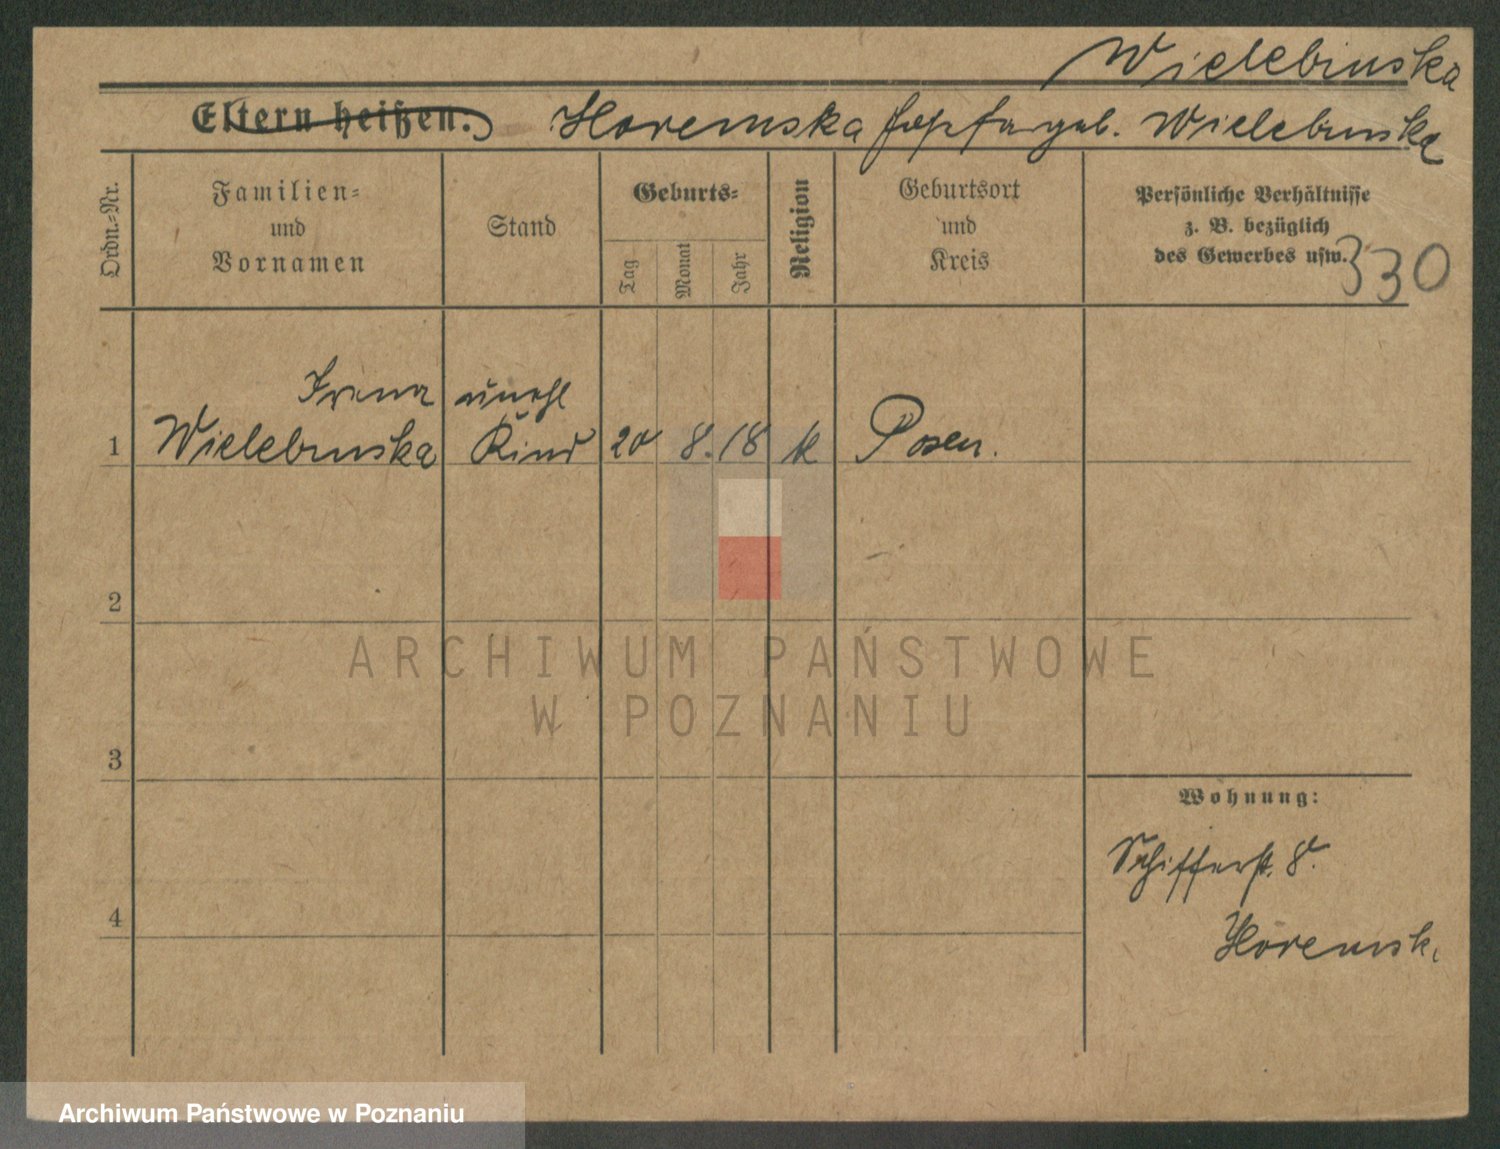 Wielebinska
Eltern heißen. Horemska geb. Wielebinska
Ordn.=Nr.
Familien=
und
Vornamen
Stand
Geburts=
Tag
Monat
Jahr
Religion
Geburtsort
und
Kreis
Persönliche Verhältnisse
z. B. bezüglich
des Gewerbes usw.
330
Irena unehl
1 Wielebinska Kind 20 8. 18 k Posen.
2
3
4
Wohnung:
Schifferst. 8.
Horemski
ARCHIWUM PAŃSTWOWE
W POZNANIU
Archiwum Państwowe w Poznaniu